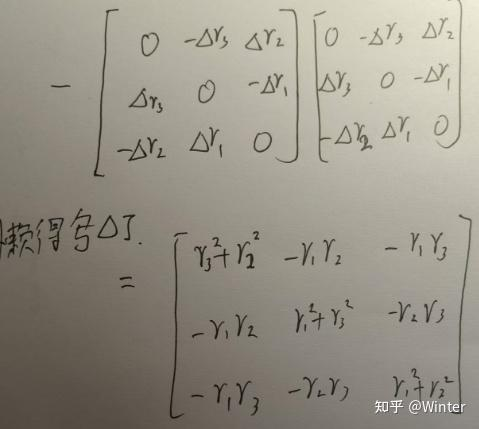 - [ 0 -Δr₃ Δr₂ ] [ 0 -Δr₃ Δr₂ ]
[ Δr₃ 0 -Δr₁ ] [ Δr₃ 0 -Δr₁ ]
[ -Δr₂ Δr₁ 0 ] [ -Δr₂ Δr₁ 0 ]
懒得写Δ了.
= [ r₃²+r₂² -r₁r₂ -r₁r₃ ]
[ -r₁r₂ r₁²+r₃² -r₂r₃ ]
[ -r₁r₃ -r₂r₃ r₁²+r₂² ]
知乎 @Winter